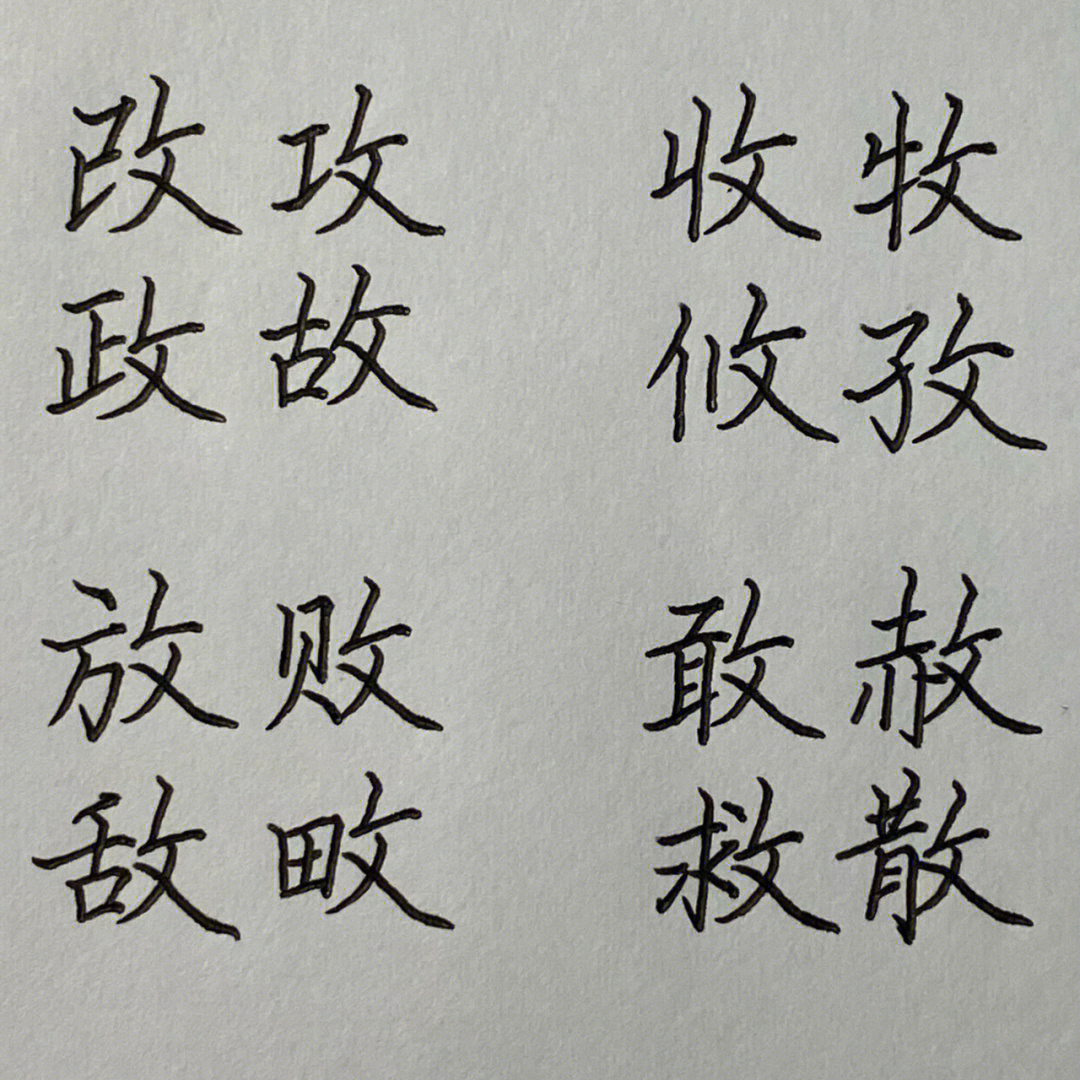 改攻 收牧
政故 攸孜
放败 敢赦
敌畋 救散